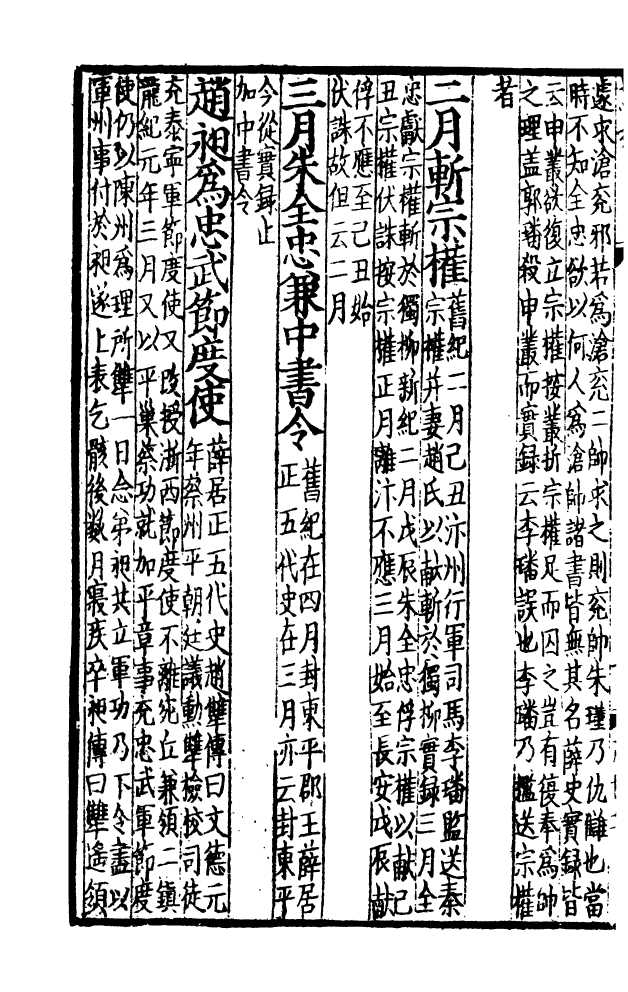 遽求滄兖邪若爲滄兖二帥求之則兖帥朱瑾乃仇讎也當
時不知全忠欲以何人爲滄帥諸書皆無其名薛史實録皆
云申叢欲復立宗權按叢折宗權足而囚之豈有復奉爲帥
之理盖郭璠殺申叢而實録云李璠誤也李璠乃檻送宗權
者
二月斬宗權
舊紀二月己丑汴州行軍司馬李璠監送秦
宗權并妻趙氏以献斬於獨柳實録三月全
忠獻宗權斬於獨柳新紀二月戊辰朱全忠俘宗權以献己
丑宗權伏誅按宗權正月離汴不應三月始至長安戊辰献
俘不應至己丑始
伏誅故但云二月
三月朱全忠兼中書令
舊紀在四月封東平郡王薛居
正五代史在三月亦云封東平
今從實録止
加中書令
趙昶爲忠武節度使
薛居正五代史趙犨傳曰文德元
年蔡州平朝廷議勲犨檢校司徒
充泰寧軍節度使又改授浙西節度使不離宛丘兼領二鎮
龍紀元年三月又以平巢蔡功就加平章事充忠武軍節度
使仍以陳州爲理所犨一日念弟昶共立軍功乃下令盡以
軍州事付於昶遂上表乞骸後數月寢疾卒昶傳曰犨遥領